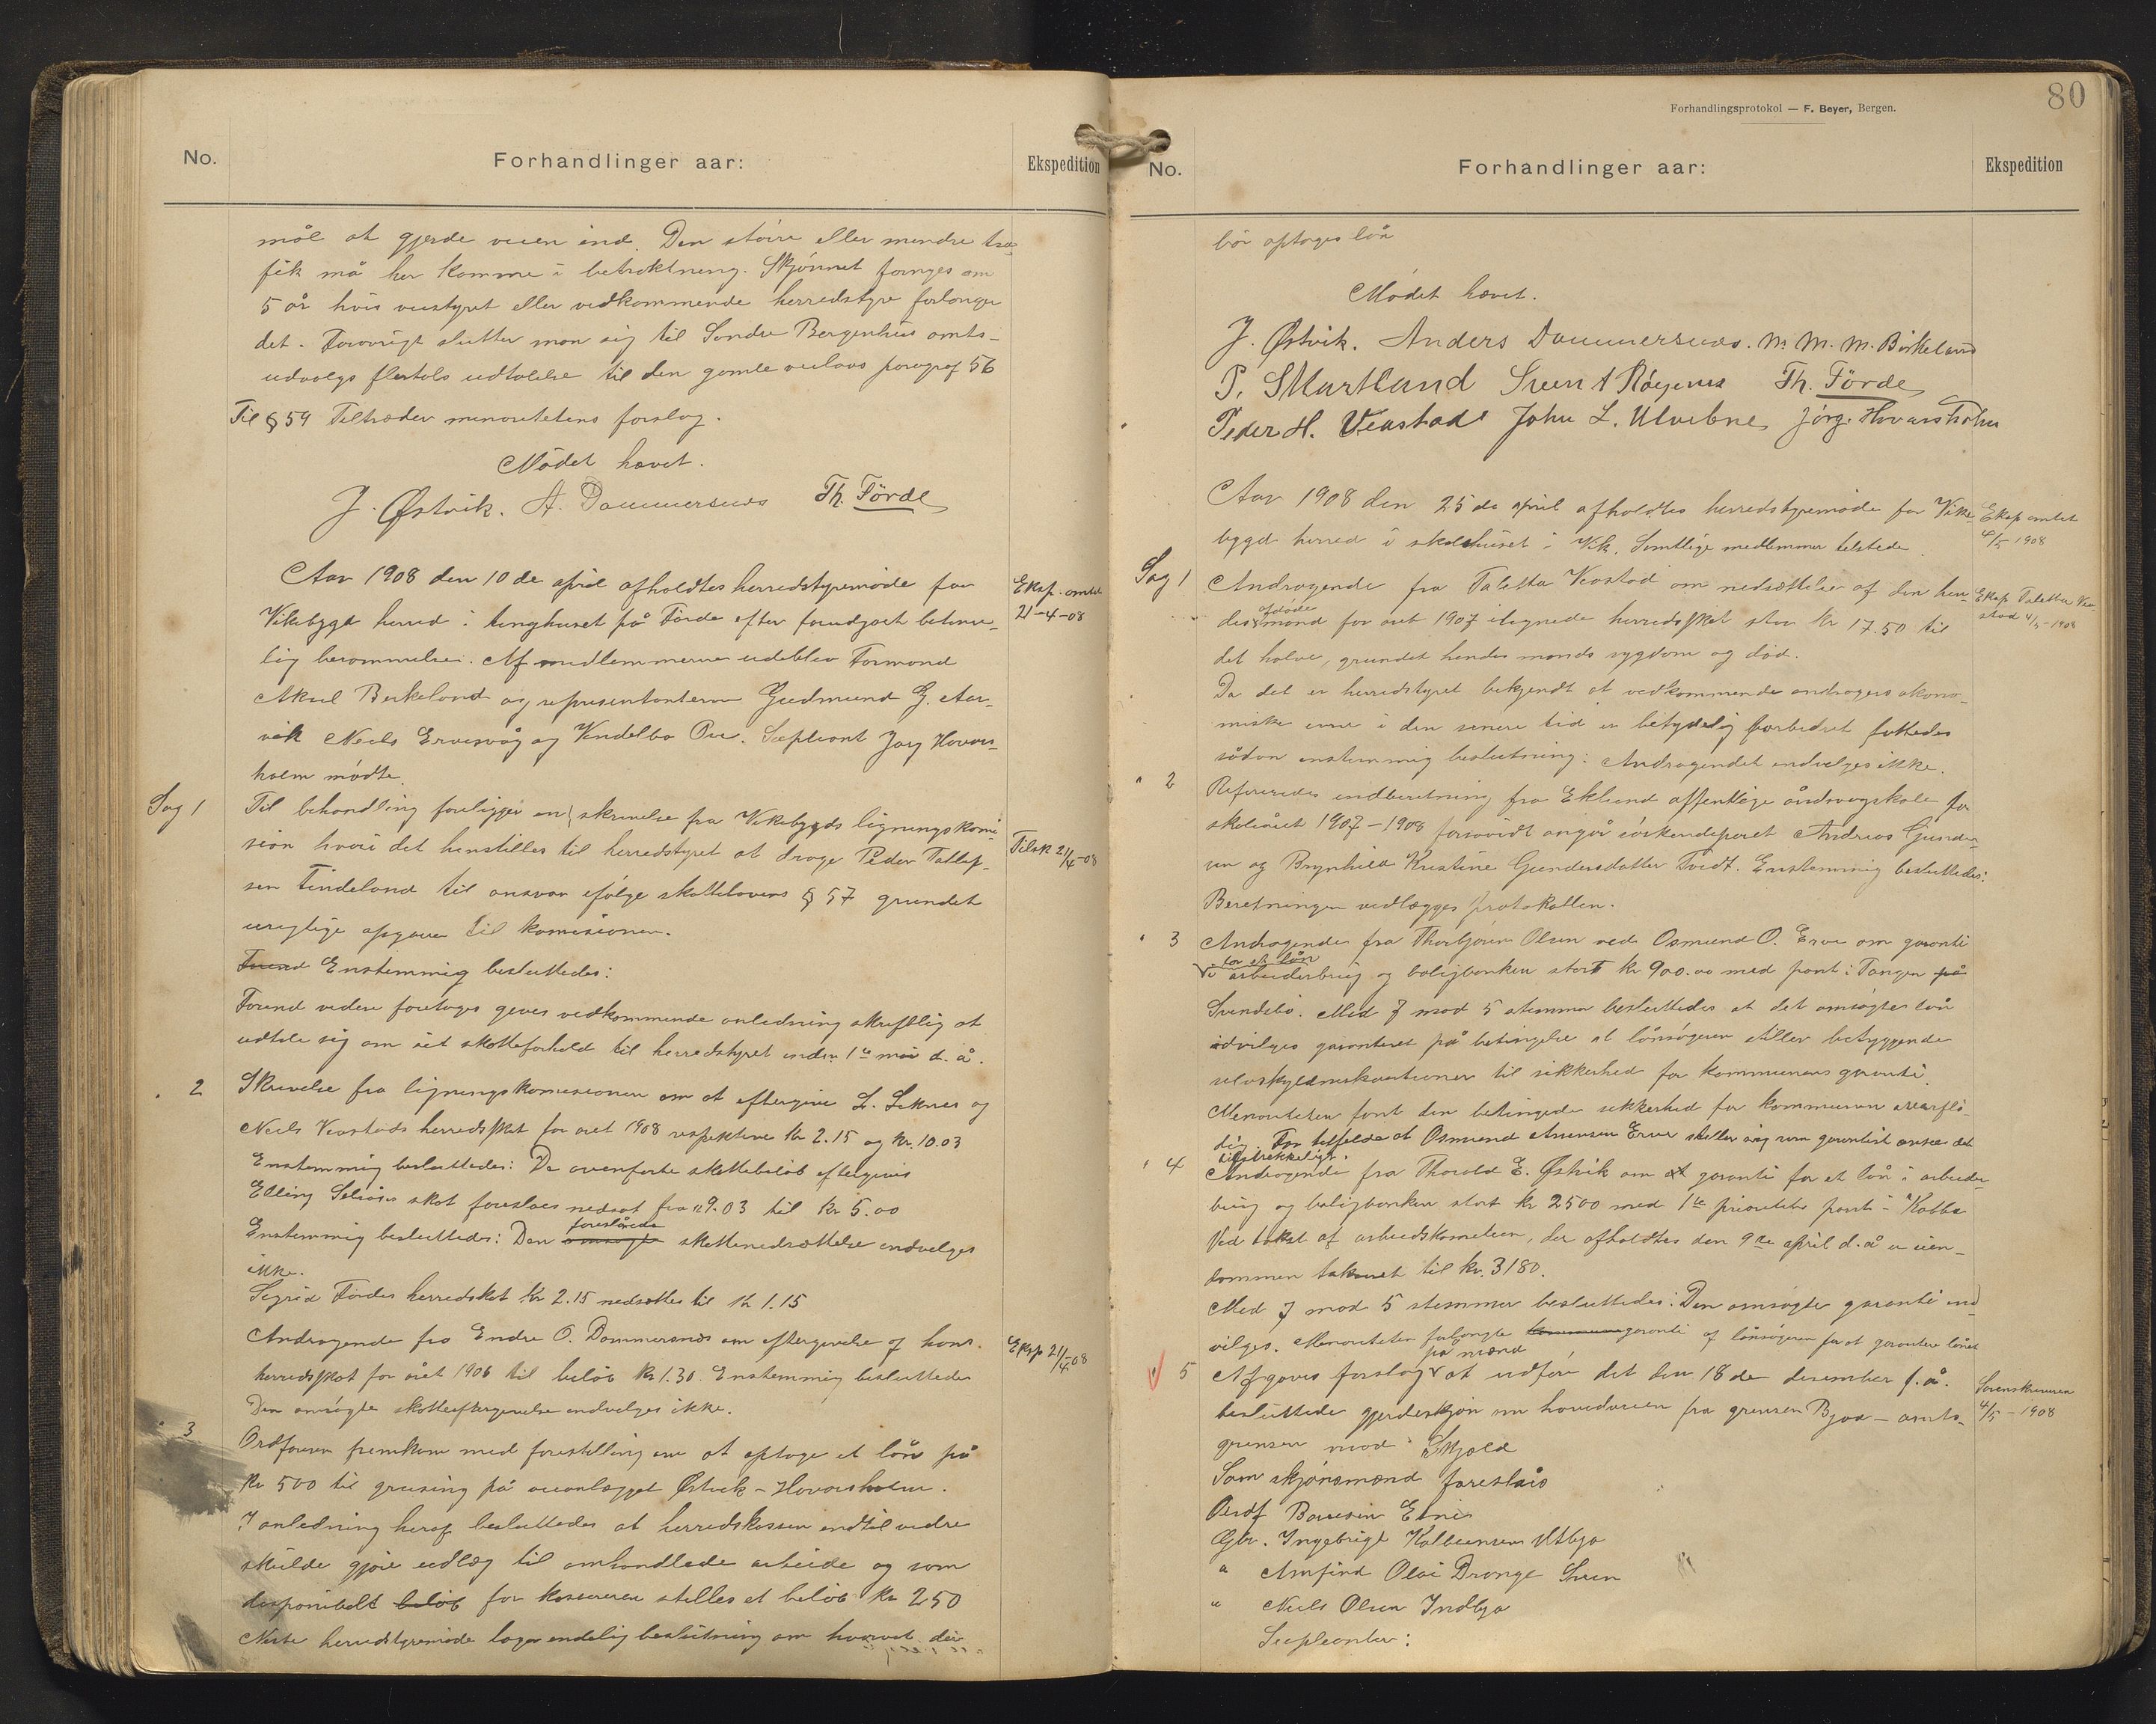 No.
Forhandlinger aar:
Ekspedition
mål at gjerde veien ind. Den større eller mindre tra-
fik må her komme i betraktning. Skjønnet fornges om
5 år hvis veistyret eller vedkommende herredstyre forlanger
det. Forøvrigt slutter man sig til Søndre Bergenhus amts-
udvalgs flertals udtalelse til den gamle veilovs paragraf 56
Til § 59 Tiltræder minoritetens forslag.
Mødet hævet.
J. Østvik. A. Dommersnes Th. Förde
Aar 1908 den 10de april afholdtes herredstyremøde for
Vikebygd herred i tinghuset på Førde efter forudgået betime-
lig berammelse. Af medlemmerne udeblev Formand
Aksel Birkeland og representanterne Gudmund G. Aar-
vik Neels Ervesvåg og Vendelbo . Supleant Jørg Hovars-
holm mødte.
Eksp. amtet
21-4-08
Sag 1
Til behandling foreligger en skrivelse fra Vikebygds ligningskomi-
sion hvori det henstilles til herredstyret at drage Peder Tallef-
sen Tindeland til ansvar ifølge skattelovens § 57 grundet
urigtige opgave til komisionen.
Enstemmig besluttedes:
Forend videre foretages gives vedkommende anledning skriftlig at
udtale sig om sit skatteforhold til herredstyret inden 1ste mai d. å.
Tilsk 21/4-08
2
Skrivelse fra ligningskomisionen om at eftergive L. Leknes og
Neels Veastads herredsskat for året 1908 respektive kr 2.15 og kr. 10.03
Enstemmig besluttedes: De ovenførte skattebeløb eftergives
Elling skat foreslaes nedsat fra 9.03 til kr 5.00
Enstemmig besluttedes: Den omsøgte foreslåede skattenedsættelse indvelges
ikke.
Sigrid Førdes herredskat kr 2.15 nedsættes til kr 1.15
Andragende fra Endre O. Dommersnes om eftergivelse af hans
herredsskat for året 1906 til beløb kr 1.30. Enstemmig besluttedes
Den omsøgte skatteeftergivelse indvelges ikke.
Eksp 21/4-08
3
Ordføreren fremkom med forestilling om at optage et lån på
kr 500 til grusing på veianlægget Østvik - Hovarsholm.
I anledning heraf besluttedes at herredskassen indtil vedre
skulde gjøre udlæg til omhandlede arbeide og som
disponibelt beløb for kassereren stilles et beløb kr 250
Neste herredstyremøde tager endelig beslutning om hvorvet der
80
Forhandlingsprotokol — F. Beyer, Bergen.
No.
Forhandlinger aar:
Ekspedition
bør optages lån
Mødet hævet.
J. Østvik. Anders Dommersnes. M. M. Birkeland
P. SMartland Svein A Røgenes Th. Förde
Peder H. Veastad John L. Ulvebne Jörg. Hovarsholm
Aar 1908 den 25de april afholdtes herredstyremøde for Vike-
bygd herred i skolehuset i Vik. Samtlige medlemmer tilstede.
Eksp amtet
4/5 1908
Sag 1
Andragende fra Taletta Veastad om nedsættelse af den hen-
des afdøde mand for året 1907 ilignede herredsskat stor kr 17.50 til
det halve, grundet hendes mands sygdom og død.
Da det er herredstyret bekjendt at vedkommende andragers økono-
miske evne i den senere tid er betydelig forbedret fattedes
sådan enstemmig beslutning: Andragendet indvelges ikke.
Eksp Taletta Vea-
stad 4/5-1908
2
Refereredes indberetning fra Eklund offentlige åndsvagskole for
skoleåret 1907-1908 forsåvidt angår søskendeparet Andreas Gunder-
sen og Brynhild Kristine Gundersdatter Tvedt. Enstemmig besluttedes:
Beretningen vedlægges protokollen.
3
Andragende fra Thorbjørn Olsen ved Osmund O. Erve om garanti
for et lån
i arbeiderbrug og boligbanken stort kr 900.00 med pant i Tangen på
Svendsbø. Med 7 mod 5 stemmer besluttedes at det omsøgte lån
indvilges garanteret på betingelse at lånsøgeren stiller betryggende
selvskyldnerkautioner til sikkerhed for kommunens garanti.
Menoriteten fant den betingede sikkerhed for kommunen overflø-
dig. For tilfælde at Osmund Erve stiller sig som garantist anses det
tilstrekkeligt.
4
Andragende fra Thorvald E. Østvik om garanti for et lån i arbeider-
brug og boligbanken stort kr 2500 med 1ste prioritets pant i Kobbe
Ved takst af arbeidskomiteen, der afholdtes den 9de april d. å er eien-
dommen takseret til kr. 3180.
Med 7 mod 5 stemmer besluttedes: Den omsøgte garanti ind-
vilges. Menoriteten forlangte garanti af lånsøgeren for at garantere lånet
5
på mænd
Afgaves forslag at udføre det den 18de desember f. å.
besluttede gjerdeskjøn om hovedveien fra grensen Bjoa - amts-
grensen mod Skjold
Som skjønsmænd foreslåes
Ordf Etne
Gbr. Ingebrigt Kolbeinsen Utbjoa
" Arnfind Olai Drange
" Neels Olsen Indbjoa
Suppleanter:
Sorenskriveren
4/5 - 1908